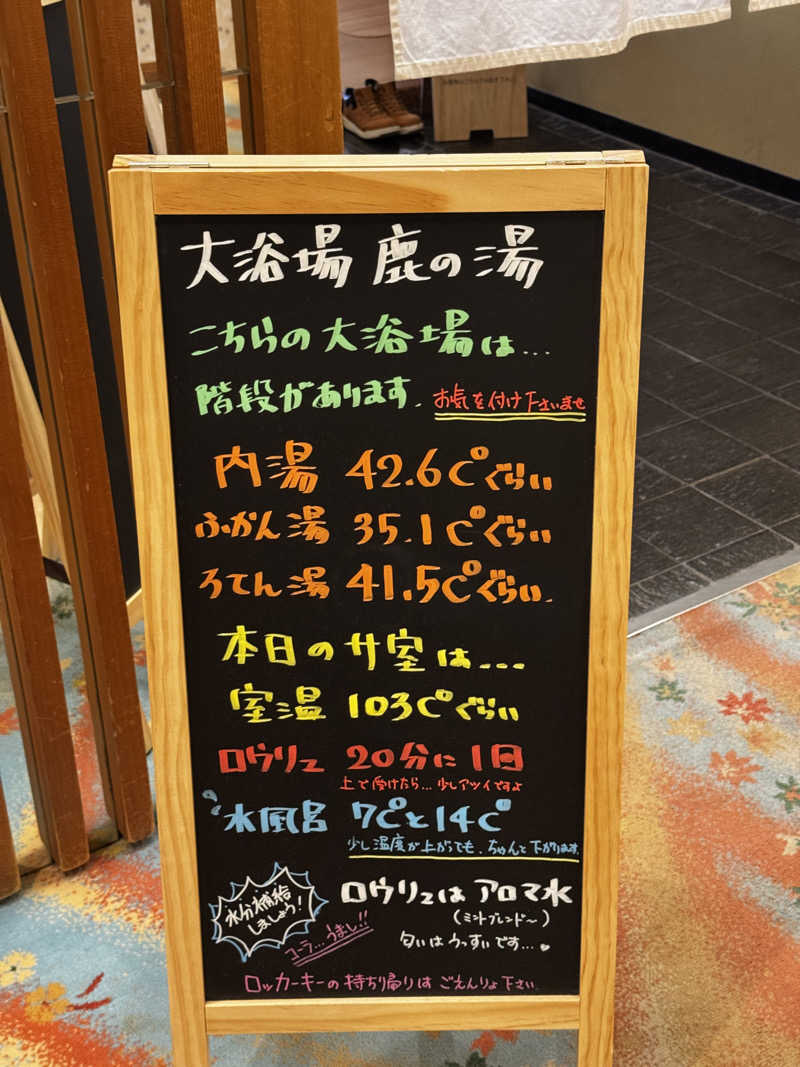 大浴場 鹿の湯
こちらの大浴場は...
階段があります. お気を付け下さいませ
内湯 42.6C°ぐらい
ふかん湯 35.1C°ぐらい
ろてん湯 41.5C°ぐらい.
本日のサ室は...
室温 103C°ぐらい
ロウリュ 20分に1回
上で受けたら...少しアツイですよ
水風呂 7C°と14C°
少し温度が上がっても、ちゃんと下がります.
水分補給
しましょう!
コーラ...うまし!!
ロウリュは アロマ水
(ミントブレンド〜)
匂いはうっすいです...
ロッカーキーの持ち帰りは ごえんりょ下さい.